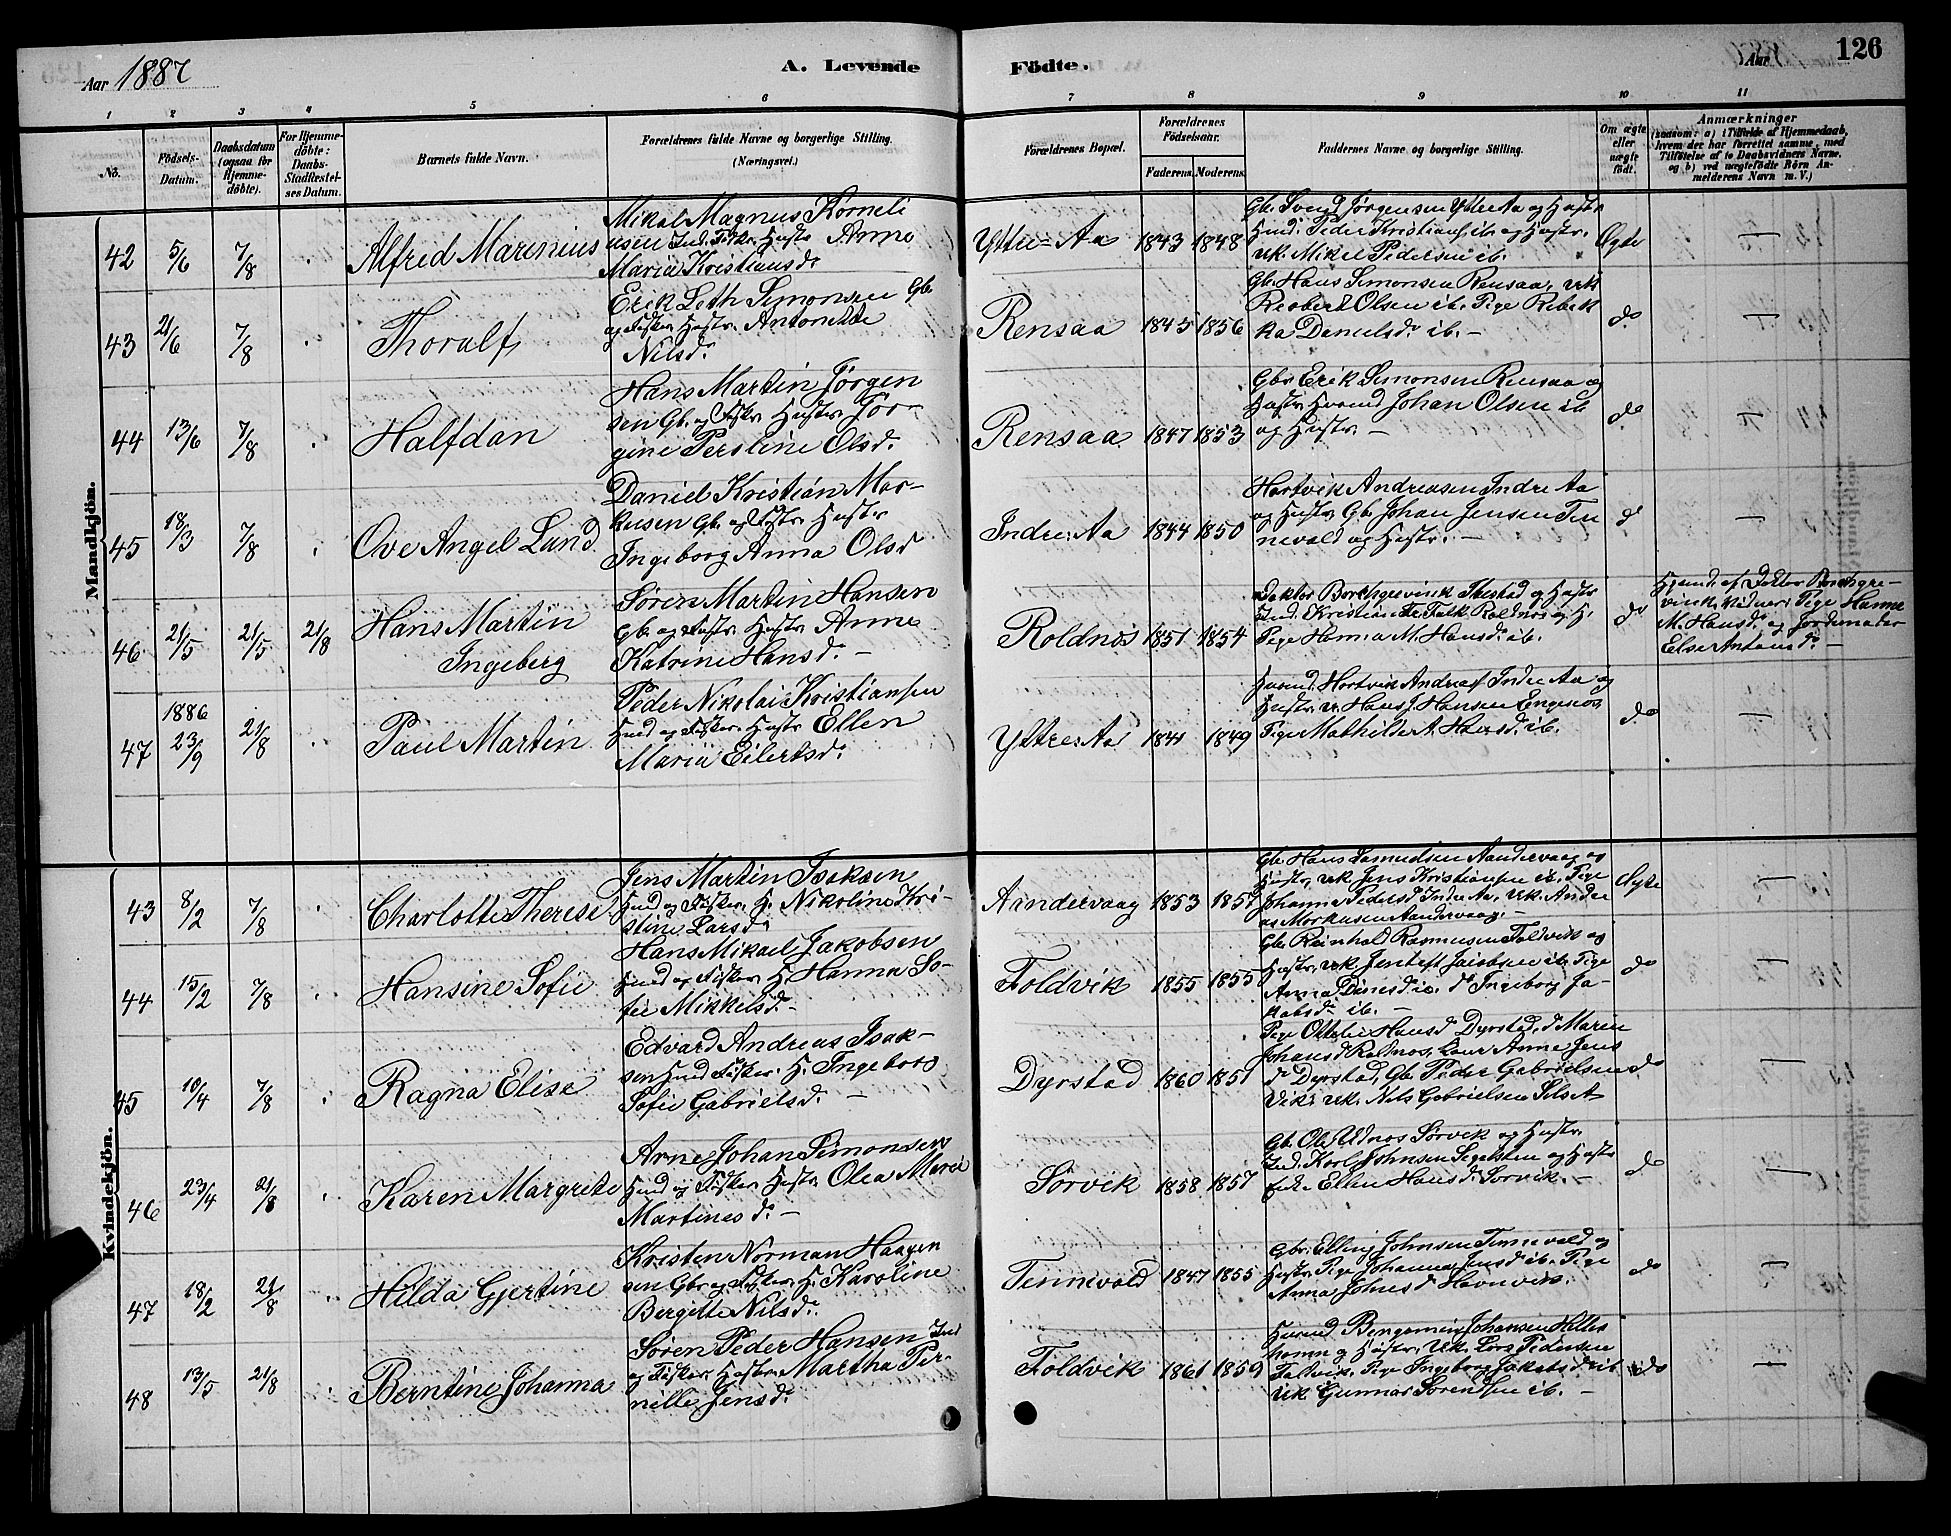 Aar 1887
A. Levende Födte.
Aar
126
1 2 3 4 5 6 7 8 9 10 11
No.
Födsels-Datum.
Daabsdatum (ogsaa for Hjemmedöbte).
For Hjemmedöbte: Daabs-Stadfæstelses Datum.
Barnets fulde Navn.
Forældrenes fulde Navne og borgerlige Stilling. (Næringsvei.)
Forældrenes Bopæl.
Forældrenes Födselsaar.
Faderens. Moderens.
Faddernes Navne og borgerlige Stilling.
Om ægte eller uægte födt.
Anmærkninger
(saasom: a) i Tilfælde af Hjemmedaab, hvem der har forrettet samme, med Tilföielse af to Daabsvidners Navne, og b) ved uægtefödte Börn Anmelderens Navn m. V.)
Mandkjön.
42 5/6 7/8 Alfred Marenius
Mikal Magnus Korneli
usen Ind. Fisker Hustr Anna
Maria Kristiansd.
Yttre-Aa 1843 1848
Gb. Svend Jörgensen Yttre Aa og Hustr.
Huusd. Peder Kristians. ib. og Hustr.
Uk. Mikel Pedersen ib.
Ægte
43 21/6 7/8 Thoralf
Erik Seth Simonsen Gb.
og Fisker Hustr. Antonette
Nilsd.
Rensaa 1845 1856
Gb. Hans Simonsen Rensaa, Uk
Reobert Olsen ib. Pige Rebek
ka Danielsd. ib. -
do
44 13/6 7/8 Halfdan
Hans Martin Jörgen
sen Gb. og Fisker Hustr. Jör-
gine Persline Olsd.
Rensaa 1847 1853
Gbr Erik Simonsen Rensaa og
Hustr. Huusd. Johan Olsen ib
og Hustr. -
do
45 18/3 7/8 Ove Angel Lund
Daniel Kristian Mar-
kusen Gb. og Fisker Hustr
Ingeborg Anna Olsd
Indre-Aa 1844 1850
Hartvik Andreasen Indre Aa
og Hustr, Gb. Johan Jensen Ten
nevold og Hustr. -
do
46 21/5 21/5 21/8 Hans Martin
Ingeberg
Sören Martin Hansen
Gb. og Fisker Hustr. Anne
Katrine Hansd. -
Roldnos 1851 1854
Doktor Borchgrevink Ibestad og Hustr
Ind. Kristian Fr. Falk Roldnos og H.
Pige Hanna M. Hansd. ib.
do
Hjemd. af Doktor Borchgre-
vink. Vidner: Pige Hanna
M. Hansd. og Jordemoder
Else Antonsd. -
47 1886 23/9 21/8 Paul Martin
Peder Nikolai Kristiansen
Huusd og Fisker. Hustr Ellen
Maria Eilertsd.
Yttre-Aa 1841 1849
Huusd. Hartvik Andreas. Indre Aa og
Hustr. Uk. Hans J. Hansen Engenos
Pige Mathilde A. Hansd. ib.
do
Kvindekjön.
43 8/2 7/8 Charlotte Therese
Jens Martin Isaksen
Huusd og Fisker. H. Nikoline Kri-
stine Larsd.
Aandervaag 1853 1857
Gb. Hans Samuelsen Aandervaag og
Hustr, Uk. Jens Kristiansen ib. Pige
Johanna Pedersd Indre Aa, Uk. Andre
as Markusen Aandervaag. -
Ægte
44 15/2 7/8 Hansine Sofie
Hans Mikael Jakobsen
Huusd og Fisker. H. Hanna So-
fie Mikkelsd. -
Foldvik 1855 1855
Gb. Reinhold Rasmusen Foldvik og
Hustr, Uk. Jentoft Jakobsen ib. Pige
Anna Danielsd ib. do Ingeborg Ja-
kobsd. ib. -
do
45 10/4 7/8 Ragna Elise
Edvard Andreas Isak-
sen Huusd Fisker. H. Ingeborg
Sofie Gabrielsd. -
Dyrstad 1860 1851
Pige Ottelie Hansd Dyrstad, do Maren
Johansd Roldnos, Anne Jens
d Dyrstad, Gb. Peder Gabrielsen
Vik, Uk. Nils Gabrielsen
do
46 23/4 21/8 Karen Margrete
Arne Johan Simonsen
Huusd og Fisker, Hustr. Olea Marie
Martinesd. -
Sörvik 1858 1857
Gb. Ole Sörvik og Hustr.
Ind. Karl Johnsen Segelsten og Hustr
Enke Ellen Hansd. Sörvik. -
do
47 18/2 21/8 Hilda Gjertine
Kristen Norman Haagen
sen Gbr og Fisker. H. Karoline
Bergitte Nilsd.
Tennevold 1847 1855
Gbr. Elling Johnsen Tennevold og
Hustr. Pige Johanna Jensd ib. Pige
Anna Johnsd Havnvik.
do
48 13/5 21/8 Berntine Johanna
Sören Peder Hansen Ind
og Fisker Hustr. Martha Per-
nille Jensd.
Foldvik 1861 1859
Huusd Bengamin Johansen Hilles
hamn og Hustr. Uk. Lars Pedersen
Foldvik, Pige Ingeborg Jakobsd ib
Uk. Gunnar Sörensen ib. -
do